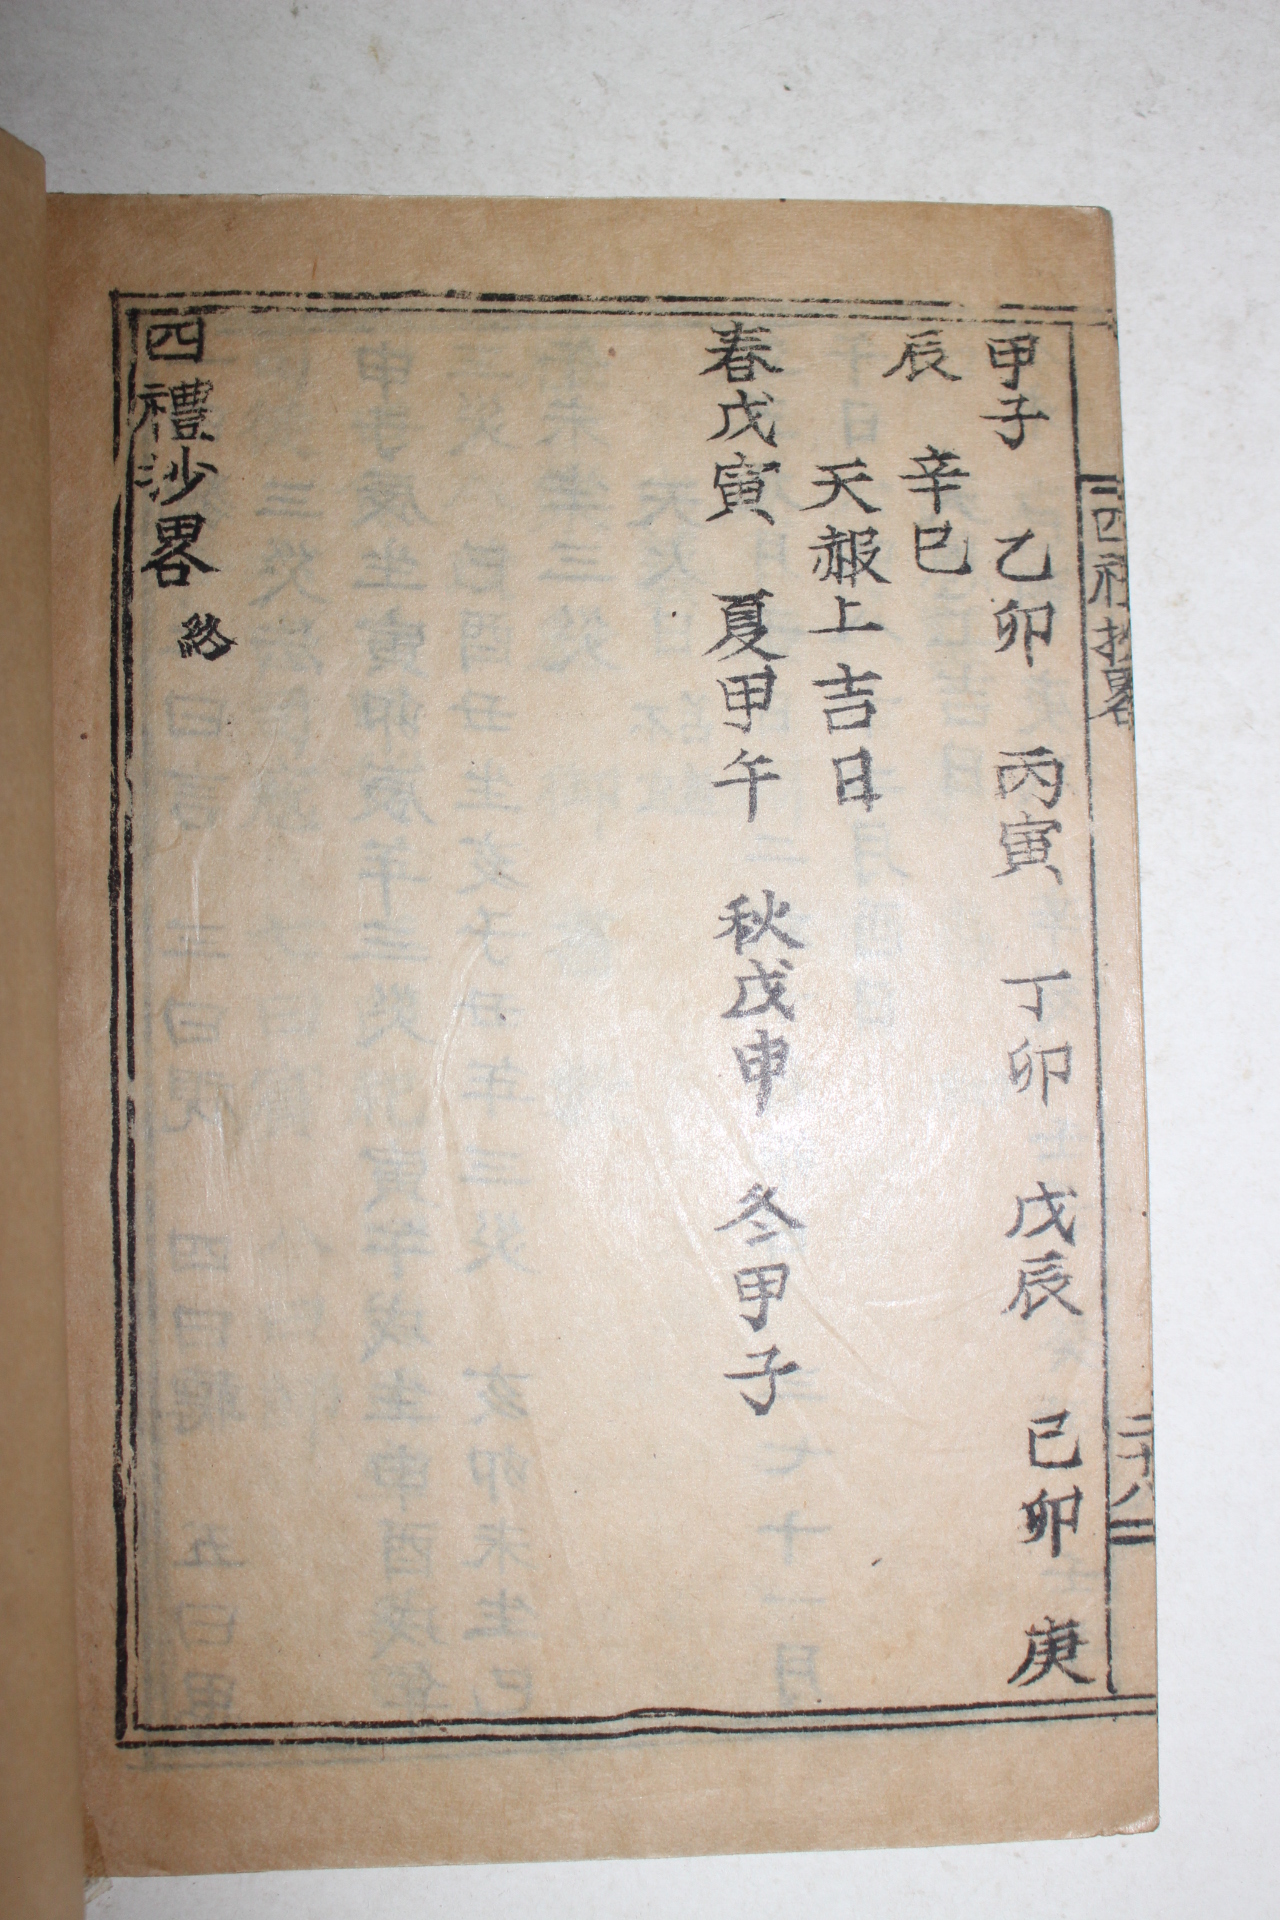 四礼抄畧
二十八
甲子 乙卯 丙寅 丁卯 戊辰 己卯 庚
辰 辛巳
天赧上吉日
春戊寅 夏甲午 秋戊申 冬甲子
四禮沙畧 终